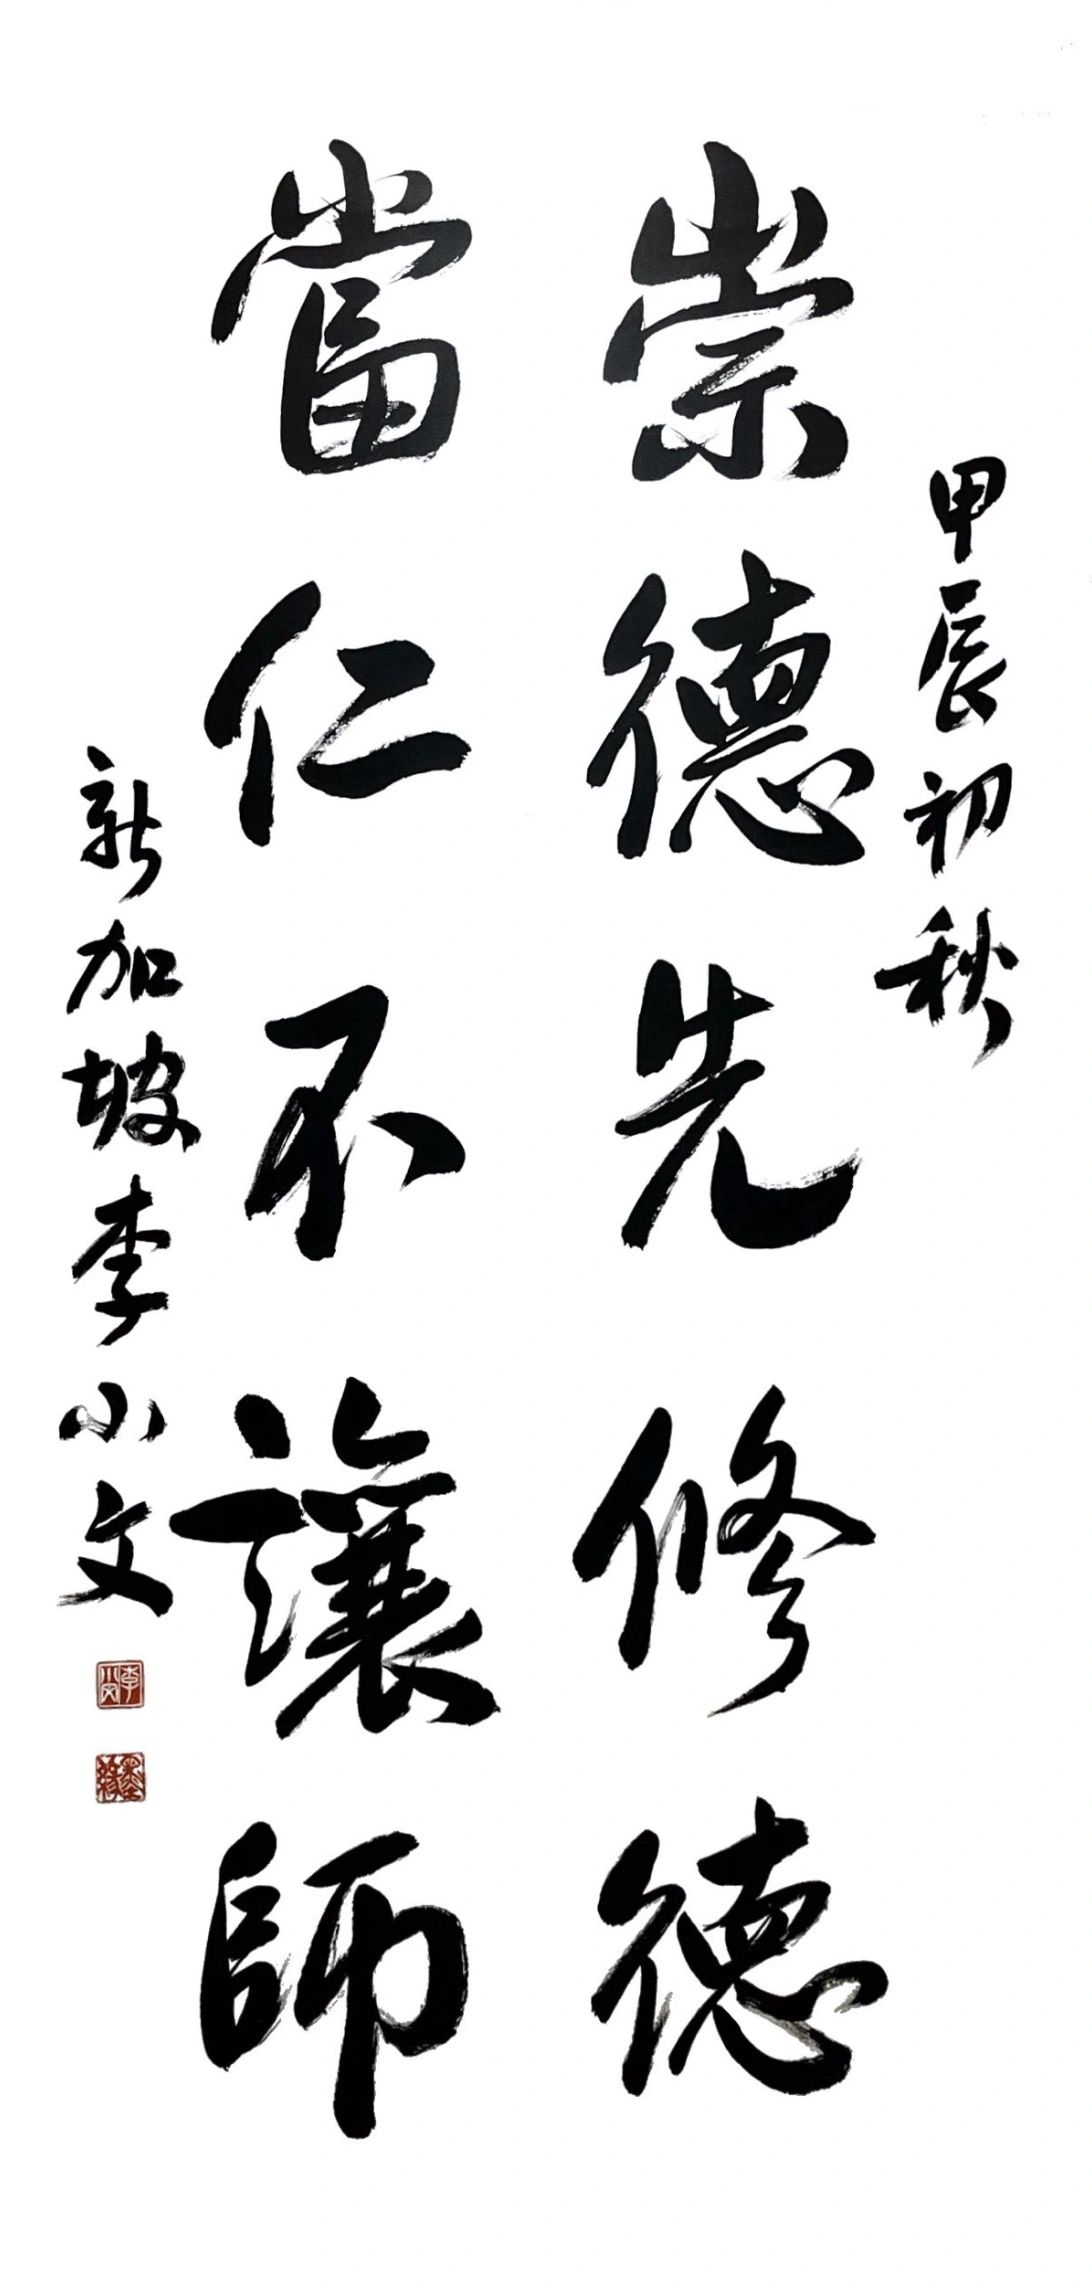 甲辰初秋
崇德先修德
當仁不讓師
新加坡李小文
李小文
墨緣